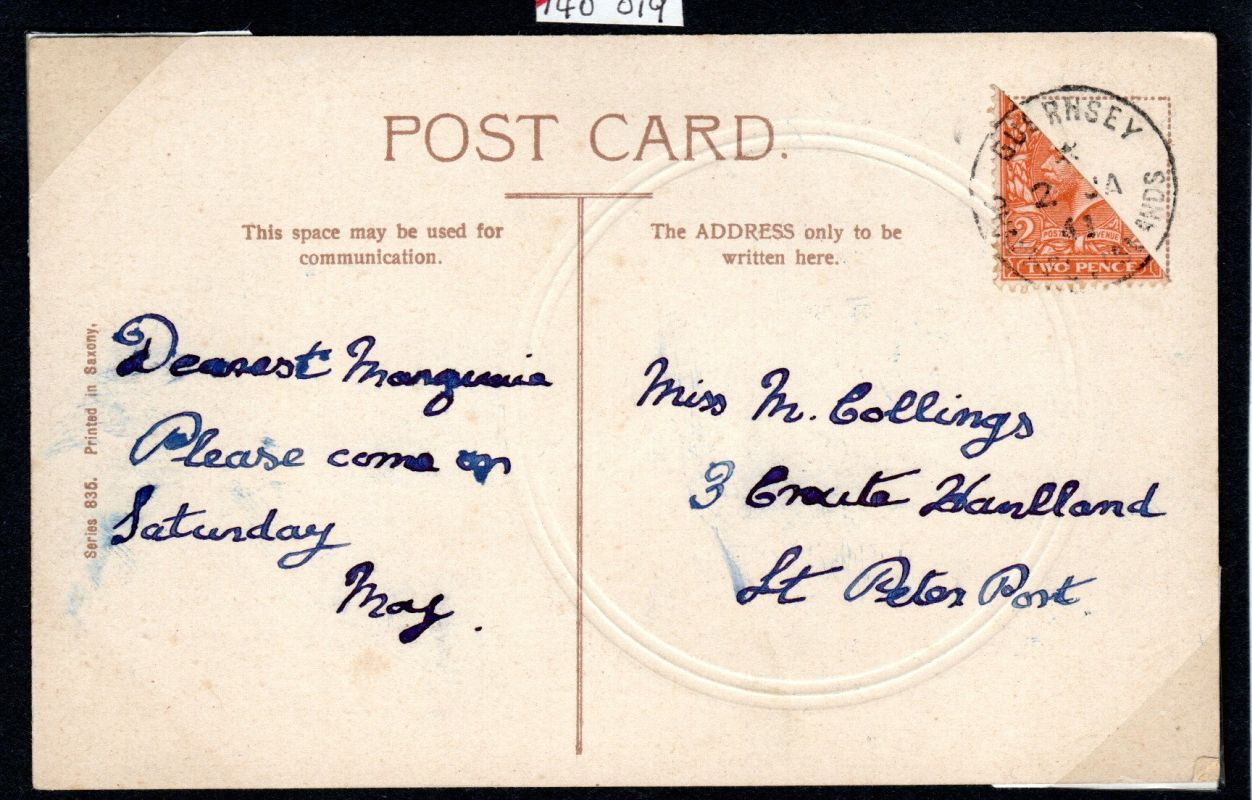 140 019
POST CARD.
This space may be used for
communication.
The ADDRESS only to be
written here.
GUERNSEY
JA
41
2
TWO PENCE
Series 835. Printed in Saxony,
Dearest
Please come on
Saturday
May.
Miss M. Collings
3 Croute
St Peter Port.